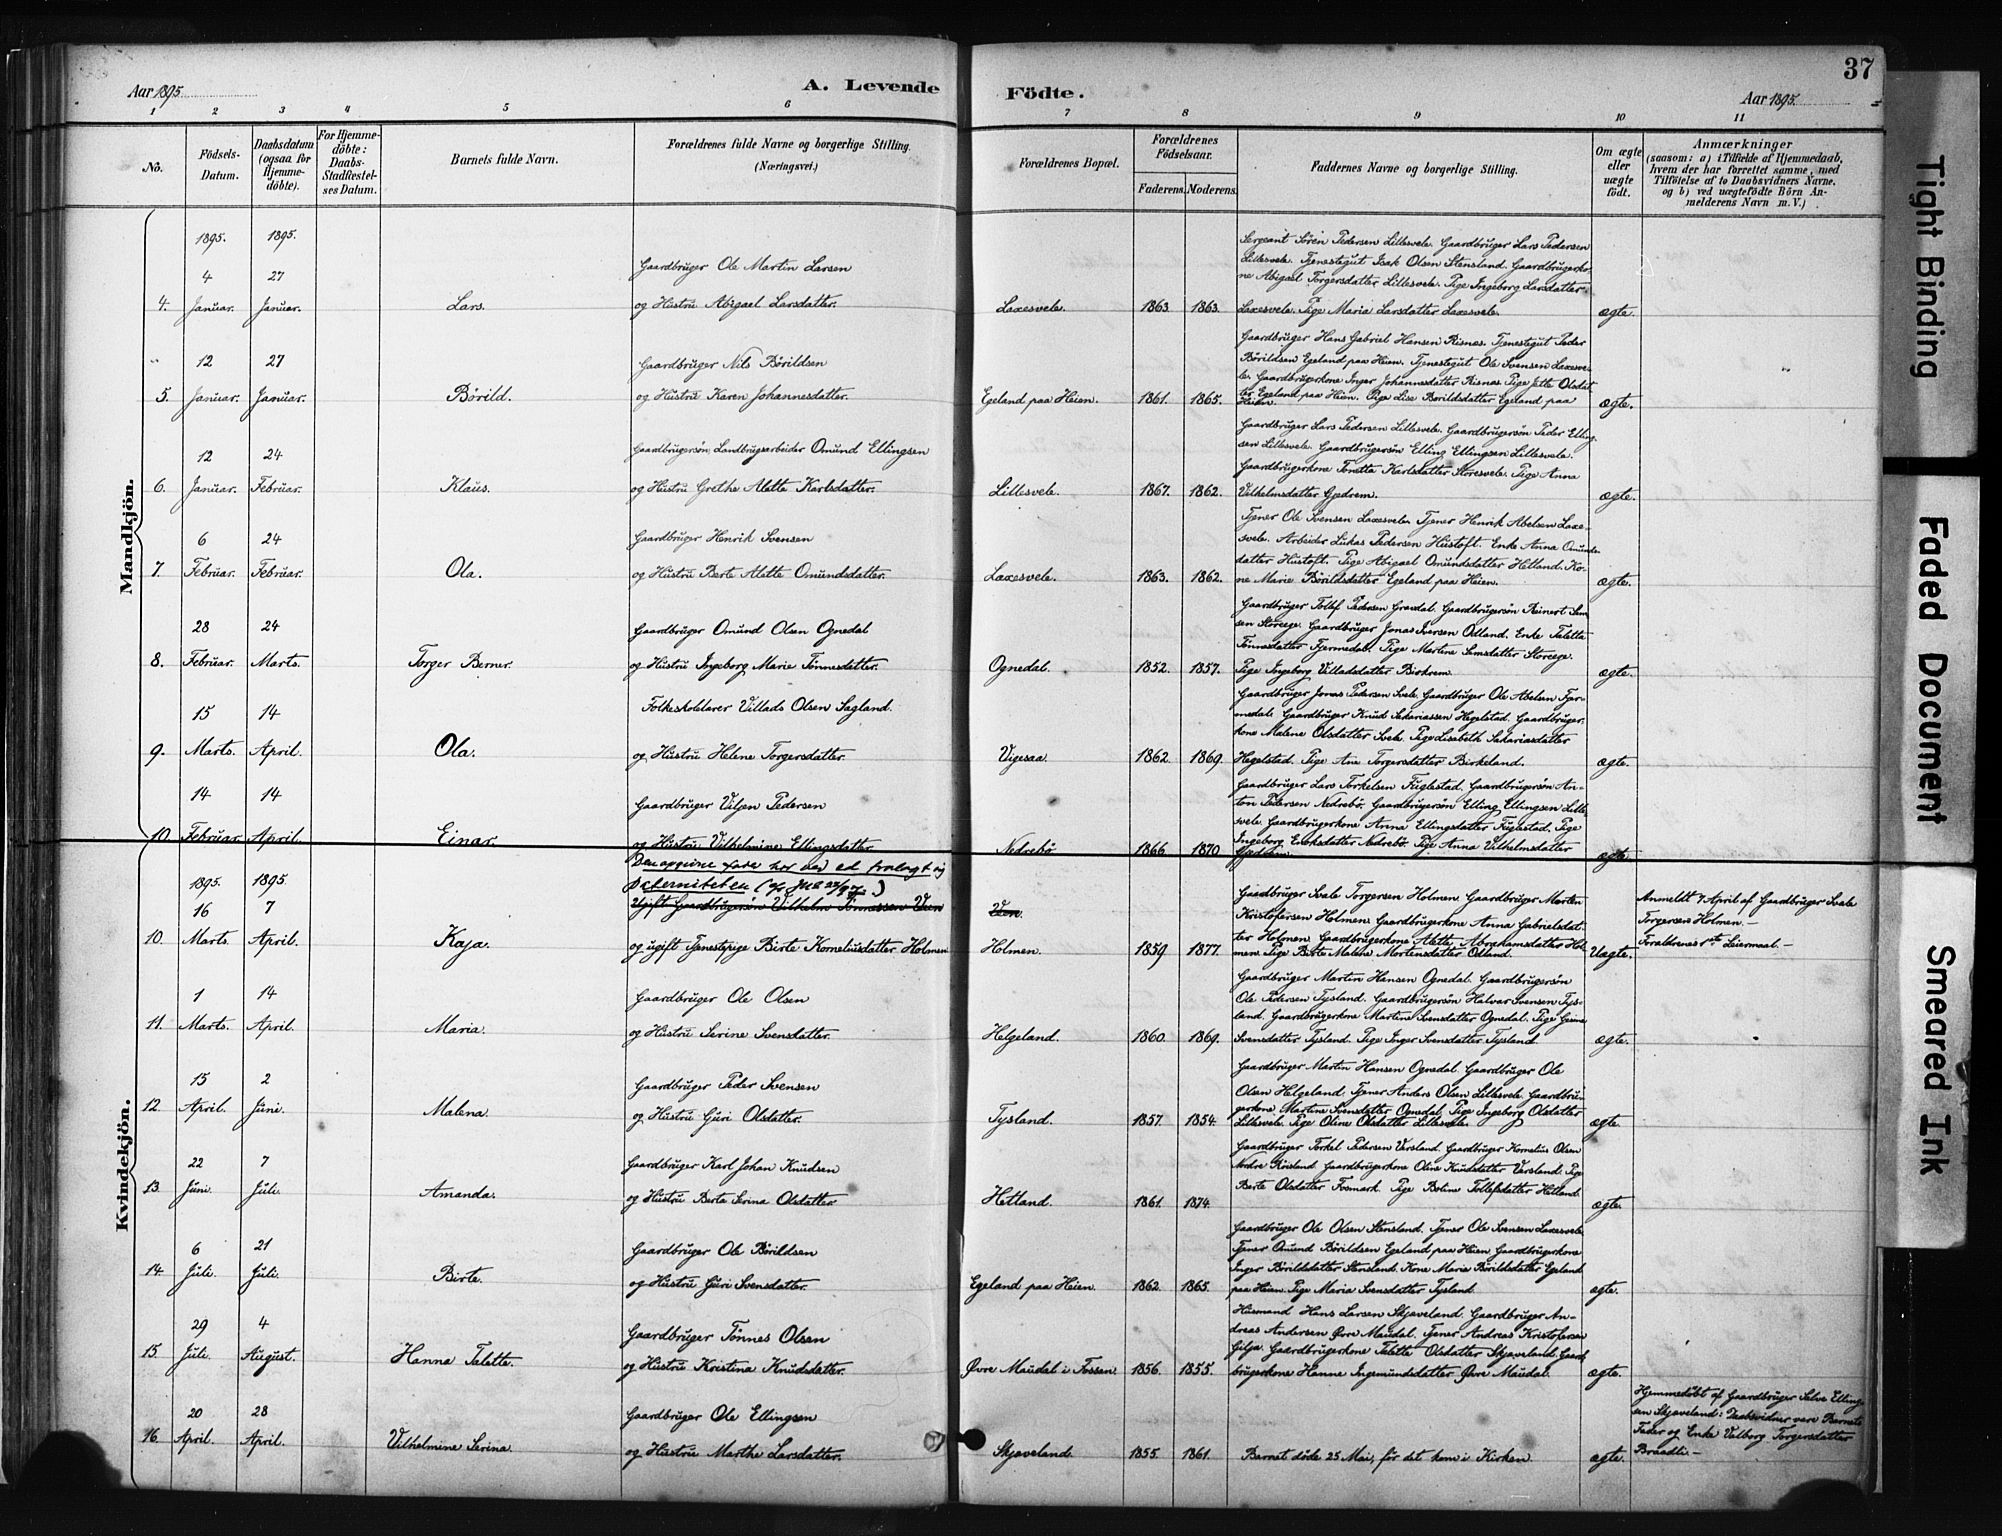 Aar 1895.
A. Levende
Födte.
Aar 1895.
37
1 2 3 4 5 6 7 8 9 10 11
No.
Födsels-Datum.
Daabsdatum (ogsaa for Hjemme-döbte).
For Hjemme-döbte: Daabs-Stadfæstelses Datum.
Barnets fulde Navn.
Forældrenes fulde Navne og borgerlige Stilling. (Næringsvei.)
Forældrenes Bopæl.
Forældrenes Födselsaar.
Faderens. Moderens.
Faddernes Navne og borgerlige Stilling.
Om ægte eller uægte födt.
Anmærkninger
(saasom: a) i Tilfælde af Hjemmedaab, hvem der har forrettet samme, med Tilföielse af to Daabsvidners Navne, og b) ved uægtefödte Börn Anmelderens Navn m. V.)
Mandkjön.
1895. 1895.
4 27
4. Januar. Januar. Lars.
Gaardbruger Ole Martin Larsen
og Hustru Abigael Larsdatter.
Laxesvele. 1863. 1863.
Sergeant Sören Pedersen Lillesvele. Gaardbruger Lars Pedersen
Lillesvele. Tjenestegut Isak Olsen Stensland. Gaardbrugerko-
ne Abigael Torgersdatter Lillesvele. Pige Ingeborg Larsdatter
Laxesvele. Pige Maria Larsdatter Laxesvele.
ægte.
12 27
5. Januar. Januar. Börild.
Gaardbruger Nils Börildsen
og Hustru Karen Johannesdatter.
Egeland paa Heien. 1861. 1865.
Gaardbruger Hans Gabriel Hansen Risnes. Tjenestegut Peder
Börildsen Egeland paa Heien. Tjenestegut Ole Svensen Laxesve-
le. Gaardbrugerkone Inger Johannesdatter Risnes. Pige Jette Olsdat
ter Egeland paa Heien. Pige Lise Börildsdatter Egeland paa
Heien.
ægte.
12 24
6. Januar. Februar. Klaus.
Gaardbrugersön, Landbrugsarbeider Omund Ellingsen
og Hustru Grethe Alette Karlsdatter.
Lillesvele. 1867. 1862.
Gaardbruger Lars Pedersen Lillesvele. Gaardbrugersön Peder Elling
sen Lillesvele. Gaardbrugersön Elling Ellingsen Lillesvele.
Gaardbrugerkone Tonette Karlsdatter Storesvele. Pige Anna
Vilhelmsdatter Gjedrem.
ægte.
6 24
7. Februar. Februar. Ola.
Gaardbruger Henrik Svensen
og Hustru Berte Alette Omundsdatter.
Laxesvele. 1863. 1862.
Tjener Ole Svensen Laxesvele. Tjener Henrik Abelsen Laxe-
svele. Arbeider Lukas Pedersen Hustoft. Enke Anna Omunds
datter Hustoft. Pige Abigael Omundsdatter Hetland. Ko-
ne Marie Börildsdatter Egeland paa Heien.
ægte.
28 24
8. Februar. Marts. Torger Berner.
Gaardbruger Omund Olsen Ognedal
og Hustru Ingeborg Marie Tönnesdatter.
Ognedal. 1852. 1857.
Gaardbruger Tollef Pedersen Gravdal. Gaardbrugersön Reinert Sam
sen Storeege. Gaardbruger Jonas Iversen Ödland. Enke Talette
Tönnesdatter Fjermedal. Pige Martine Samsdatter Storeege.
Pige Ingeborg Villadsdatter Birkrem.
ægte.
15 14
9. Marts. April. Ola.
Folkeskolelærer Villads Olsen Sagland.
og Hustru Helene Torgersdatter.
Vigesaa. 1862. 1869.
Gaardbruger Jonas Pedersen Svele. Gaardbruger Ole Abelsen Fjer-
medal. Gaardbruger Knud Sakariassen Hegelstad. Gaardbruger-
kone Malene Olsdatter Svele. Pige Lisabeth Sakariasdatter
Hegelstad. Pige Ane Torgersdatter Birkeland.
ægte.
14 14
10. Februar. April. Einar.
Gaardbruger Viljen Pedersen
og Hustru Vilhelmine Ellingsdatter.
Nedrebö 1866 1870
Gaardbruger Lars Torkelsen Fuglestad. Gaardbrugersön An-
ton Pedersen Nedrebö. Gaardbrugersön Elling Ellingsen Lille-
svele. Gaardbrugerkone Anna Ellingsdatter Fuglestad. Pige
Ingeborg Enoksdatter Nedrebö. Pige Anna Vilhelmsdatter
Gjedrem.
ægte
Kvindekjön.
1895. 1895.
16 7
10. Marts. April. Kaja.
Den opgivne far har ved ed fralagt sig
Paterniteten
Ugift Gaardbrugersön Vilhelm Tönnessen Veen
og ugift Tjenestepige Birte Korneliusdatter Holmen
Veen.
Holmen. 1859. 1877.
Gaardbruger Svale Torgersen Holmen. Gaardbruger Morten
Kristofersen Holmen. Gaardbrugerkone Anna Gabrielsdat-
ter Holmen. Gaardbrugerkone Alette Abrahamsdatter Hol
men. Pige Birte Malene Mortensdatter Ödland.
Uægte.
Anmeldt 7 April af Gaardbruger Svale
Torgersen Holmen.-
Forældrenes 1ste Leiermaal.-
1 14
11. Marts. April. Maria.
Gaardbruger Ole Olsen
og Hustru Serine Svensdatter.
Helgeland. 1860. 1869.
Gaardbruger Martin Hansen Ognedal. Gaardbrugersön
Ole Pedersen Tysland. Gaardbrugersön Halvar Svensen Tys-
land. Gaardbrugerkone Martine Svensdatter Ognedal. Pige
Svensdatter Tysland. Pige Inger Svensdatter Tysland
ægte.
15 2
12. April. Juni. Malena.
Gaardbruger Peder Svensen
og Hustru Guri Olsdatter.
Tysland. 1857. 1854.
Gaardbruger Martin Hansen Ognedal. Gaardbruger Ole
Olsen Helgeland. Tjener Anders Olsen Lillesvele. Gaardbru-
gerkone Martine Svensdatter Ognedal. Pige Ingeborg Olsdatter
Lillesvele. Pige Oline Olsdatter Lillesvele.
ægte.
22 7
13. Juni. Juli. Amanda.
Gaardbruger Karl Johan Knudsen
og Hustru Berte Serina Olsdatter.
Hetland. 1861. 1874.
Gaardbruger Torkel Pedersen Versland. Gaardbruger Kornelius Olsen
Nedre Röisland. Gaardbrugerkone Oline Knudsdatter Versland. Pige
Berte Olsdatter Fosmark. Pige Boline Tollefsdatter Hetland
ægte.
6 21
14. Juli. Juli. Birte.
Gaardbruger Ole Börildsen
og Hustru Guri Svensdatter.
Egeland paa Heien. 1862. 1865.
Gaardbruger Ole Olsen Stensland. Tjener Ole Svensen Laxesvele.
Tjener Omund Börildsen Egeland paa Heien. Gaardbrugerkone
Inger Börildsdatter Stensland. Kone Maria Börildsdatter Egeland
paa Heien. Pige Maria Svensdatter Tysland.
ægte.
29 4
15. Juli. August. Hanna Talette.
Gaardbruger Tönnes Olsen
og Hustru Kristina Knudsdatter.
Övre Maudal i Fossen. 1856. 1855.
Husmand Hans Larsen Skjæveland. Gaardbruger An-
dreas Andersen Övre Maudal. Tjener Andreas Kristofersen
Gilja. Gaardbrugerkone Talette Olsdatter Skjæveland. Gaard
brugerkone Hanne Ingemundsdatter Övre Maudal.
ægte.
20 28
16 April. April. Vilhelmine Serina.
Gaardbruger Ole Ellingsen
og Hustru Marthe Larsdatter.
Skjæveland. 1855. 1861.
Barnet döde 25 Mai, för det kom i Kirken
ægte.
Hjemmedöbt af Gaardbruger Salve Elling
sen Skjæveland; Daabsvidner vare Barnets
Fader og Enke Valborg Torgersdatter
Braadli.-
Tight Binding
Faded Document
Smeared Ink